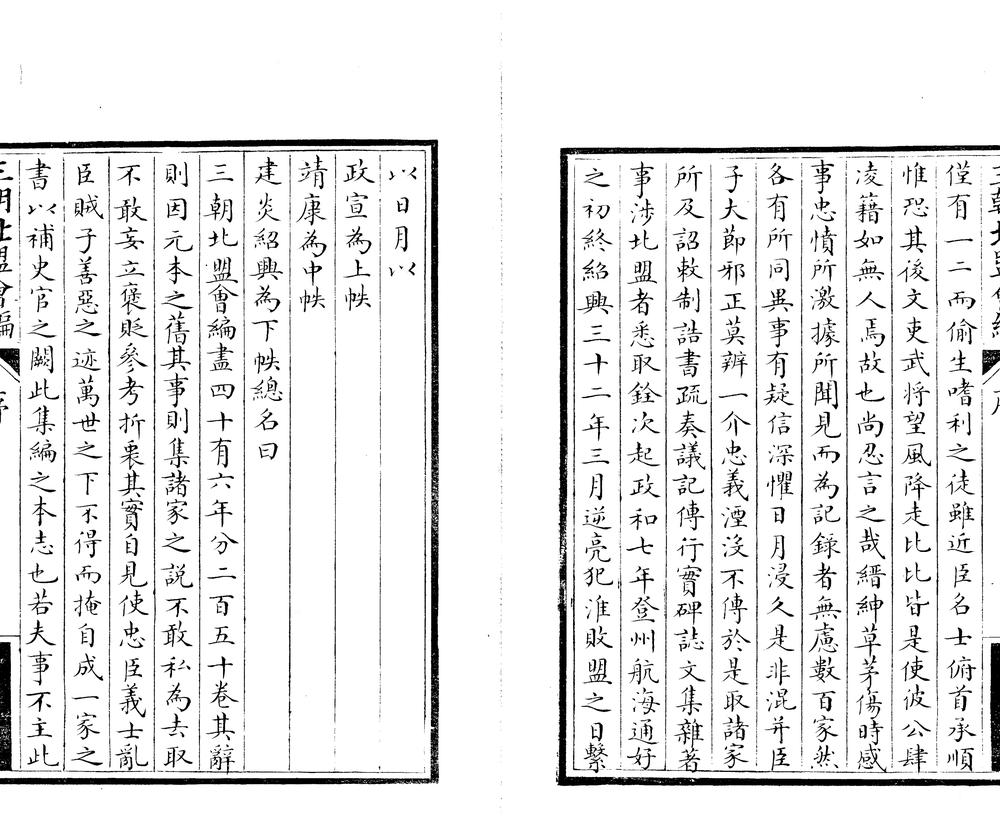 三朝北盟會編
序
僅有一二而偷生嗜利之徒雖近臣名士俯首承順
惟恐其後文吏武將望風降走比比皆是使彼公肆
凌籍如無人焉故也尚忍言之哉縉紳草茅傷時感
事忠憤所激據所聞見而為記録者無慮數百家然
各有所同異事有疑信深懼日月浸久是非混并臣
子大節邪正莫辨一介忠義湮沒不傳於是取諸家
所及詔敕制誥書疏奏議記傳行實碑誌文集雜著
事涉北盟者悉取銓次起政和七年登州航海通好
之初終紹興三十二年三月逆亮犯淮敗盟之日繫
以日月以
政宣為上帙
靖康為中帙
建炎紹興為下帙總名曰
三朝北盟會編盡四十有六年分二百五十卷其辭
則因元本之舊其事則集諸家之說不敢私為去取
不敢妄立褒貶參考折衷其實自見使忠臣義士亂
臣賊子善惡之迹萬世之下不得而掩自成一家之
書以補史官之闕此集編之本志也若夫事不主此
三朝北盟會編
序